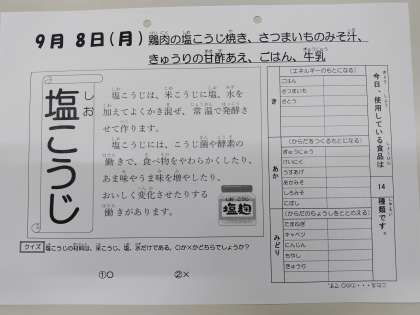 9月 8日(月) 鶏肉の塩こうじ焼き、さつまいものみそ汁、
きゅうりの甘酢あえ、ごはん、牛乳
塩こうじ
しお
塩こうじは、米こうじに塩、水を
加えてよくかき混ぜ、常温で発酵さ
せて作ります。
塩こうじには、こうじ菌や酵素の
働きで、食べ物をやわらかくしたり、
あま味やうま味を増やしたり、
おいしく変化させたりする
働きがあります。
塩麹
クイズ 塩こうじの材料は、米こうじ、塩、水だけである。○か×かどちらでしょうか?
①○ ②×
今日、使用している食品は
14
種類です。
き
(エネルギーのもとになる)
ごはん
さつまいも
さとう
あか
(からだをつくるもとになる)
ぎゅうにゅう
けいにく
うすあげ
あかみそ
しろみそ
にぼし
みどり
(からだのちょうしをととのえる)
たまねぎ
キャベツ
にんじん
もやし
きゅうり